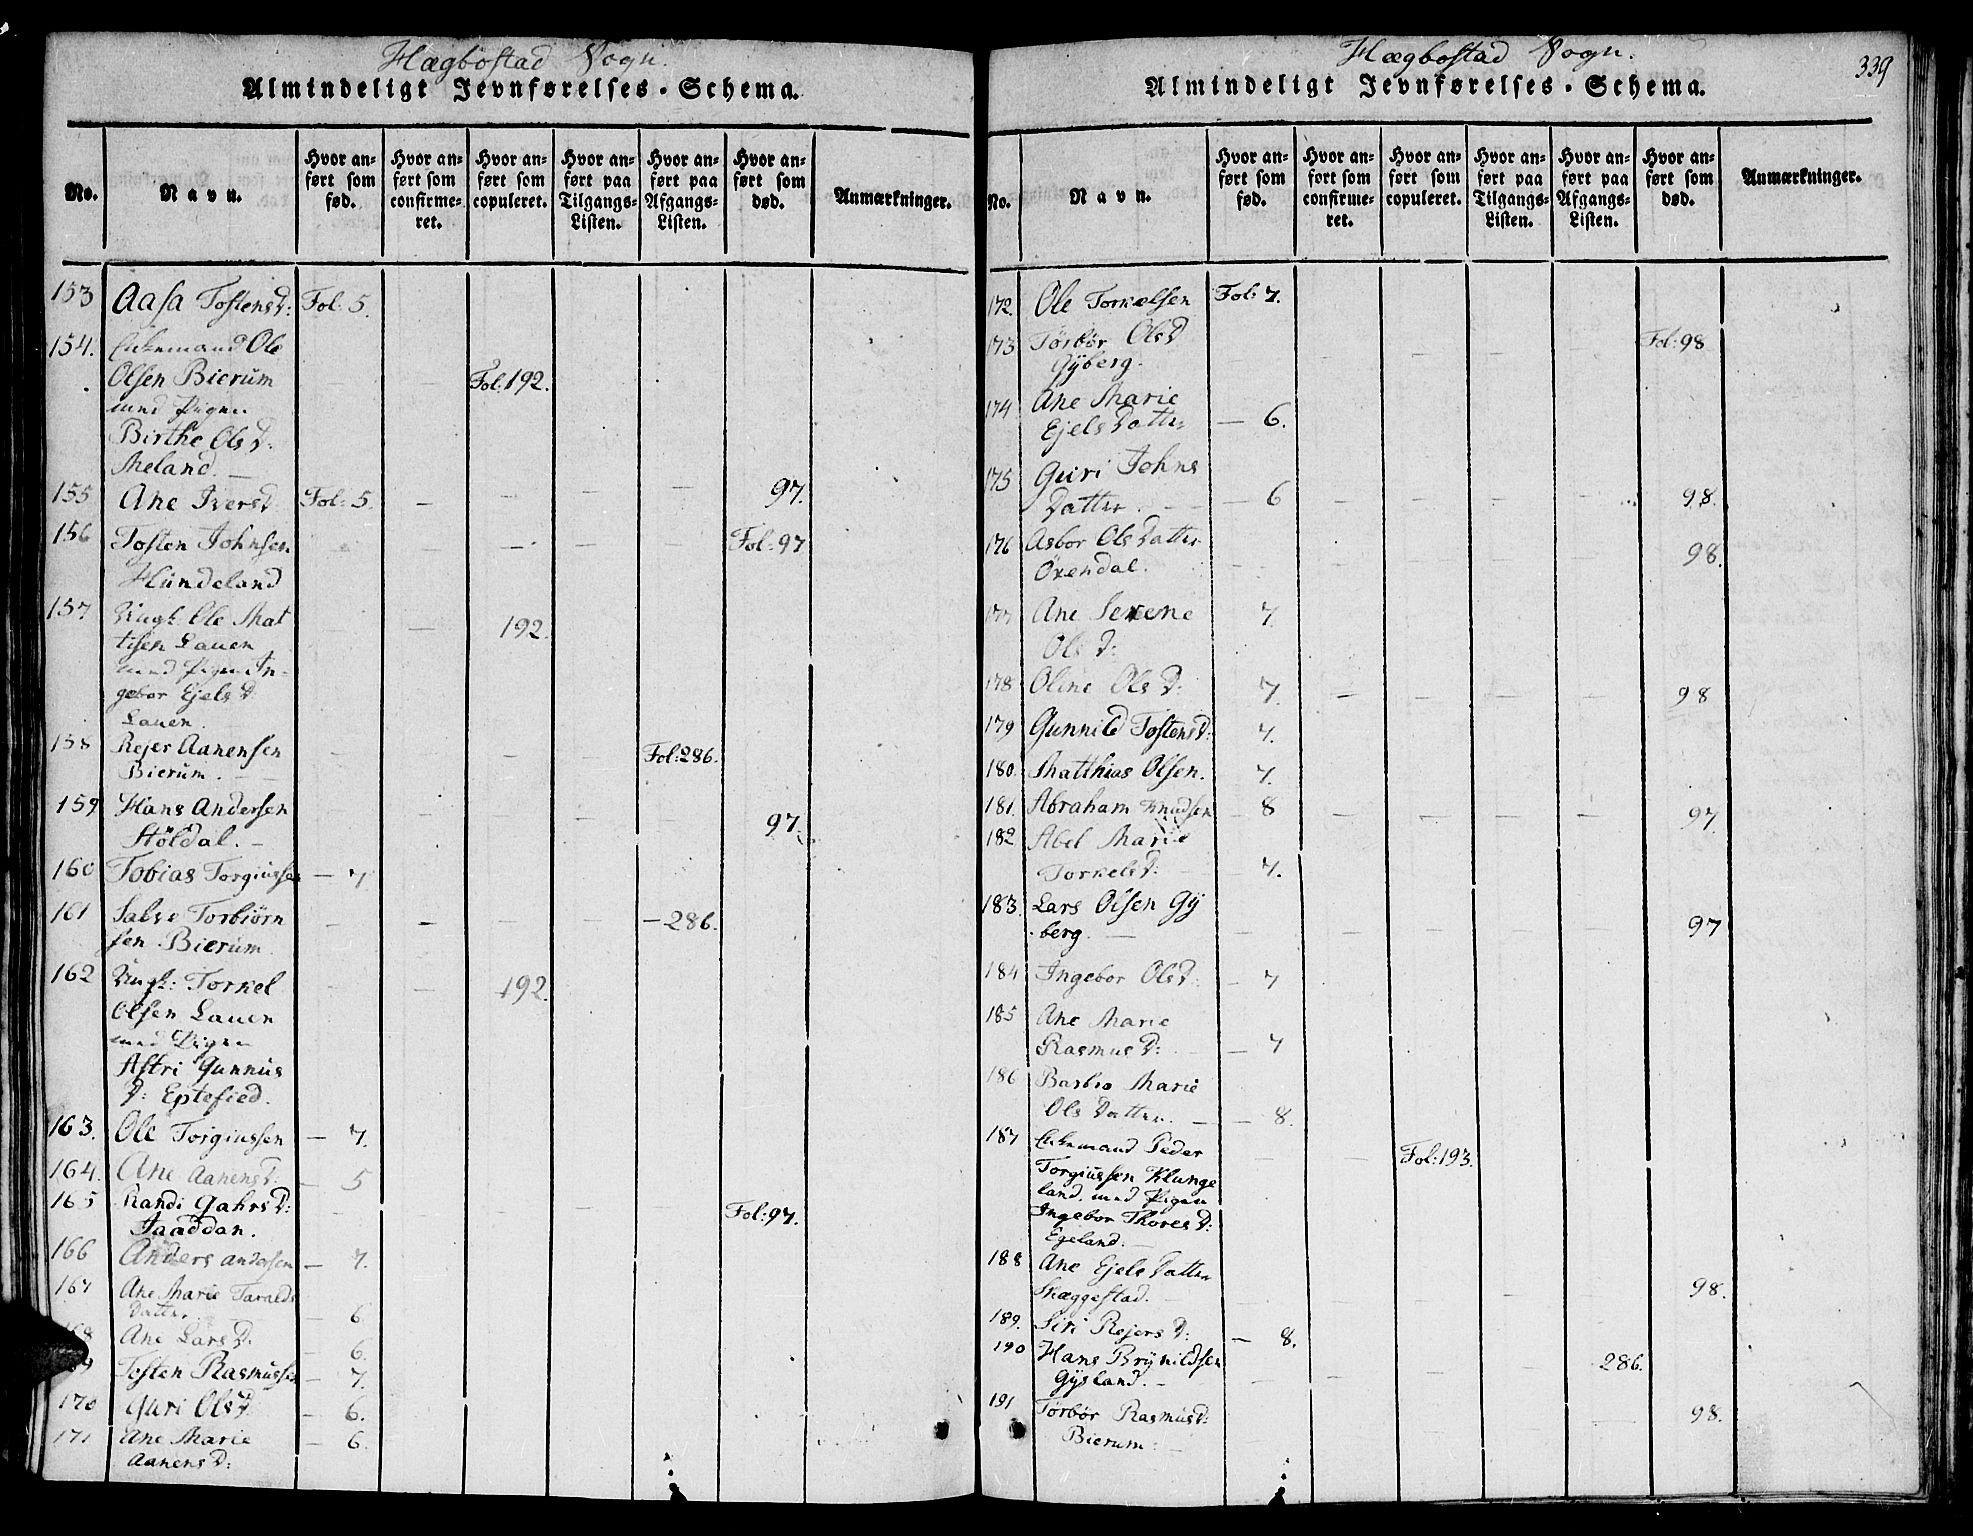 Hægbostad Sogn.
Almindeligt Jevnførelses-Schema.
No.
Navn.
Hvor an-
ført som
fød.
Hvor an-
ført som
confirme-
ret.
Hvor an-
ført som
copuleret.
Hvor an-
ført paa
Tilgangs-
Listen.
Hvor an-
ført paa
Afgangs-
Listen.
Hvor an-
ført som
død.
Anmærkninger.
153 Aasa Tostensd: Fol: 5.
154. Enkemand Ole
Olsen Bierum Fol: 192.
med Pigen
Birthe Olsd.
Meland.
155 Ane Iversd Fol: 5. 97.
156 Tosten Johnsen Fol: 97
Hundeland
157 Ungk: Ole Mat
tisen Lauen 192.
med Pigen In-
gebor Ejelsd
Lauen.
158 Rejer Aanensen Fol: 286.
Bierum.
159 Hans Andersen
Stöldal. 97.
160 Tobias Torgiussen — 7
161 Salve Torbiørn — 286.
sen Bierum
162 Ungk: Torkel 192.
Olsen Lauen
med Pigen
Astri Gunnus
D: Eptefied.
163. Ole Torgiussen — 7.
164. Ane Aanensd: — 5
165 Randi Gahrsd: Fol: 97.
Jaaddan.
166 Anders Andersen — 7.
167 Ane Marie Taralds
Datter — 6.
168 Ane Larsd. — 6.
169 Tosten Rasmussen — 7.
170 Guri Olsd — 6.
171 Ane Marie — 6.
Aanensd:
Hægbostad Sogn.
339
Almindeligt Jevnførelses-Schema.
No.
Navn.
Hvor an-
ført som
fød.
Hvor an-
ført som
confirme-
ret.
Hvor an-
ført som
copuleret.
Hvor an-
ført paa
Tilgangs-
Listen.
Hvor an-
ført paa
Afgangs-
Listen.
Hvor an-
ført som
død.
Anmærkninger.
172. Ole Torkelsen Fol: 7.
173 Törbör Olsd Fol: 98
Gyberg.
174 Ane Marie
Ejels Datter — 6.
175 Guri Johns
Datter. — 6 98.
176 Asbor Ols Datter 98.
Öxendal.
177 Ane Serene 7
Olsd:
178 Oline Olsd: 7. 98
179 Gunnild Tostensd: 7.
180. Matthias Olsen. 7.
181. Abraham Knudsen 8 97.
182 Abel Marie
Torkelsd: — 7.
183. Lars Olsen Gy
berg. 97
184 Ingebor Olsd: — 7
185 Ane Marie
Rasmusd: — 7
186 Barbro Marie
Ols Datter. — 8.
187 Enkemand Peder Fol: 193.
Torgiussen Klunge
land. med Pigen
Ingebor Thoresd:
Egeland.
188 Ane Ejels Datter
Skæggestad. 98.
189. Siri Rejersd: — 8.
190 Hans Brynildsen 286.
Gysland.
191 Törbör Rasmusd: 98.
Bierum.